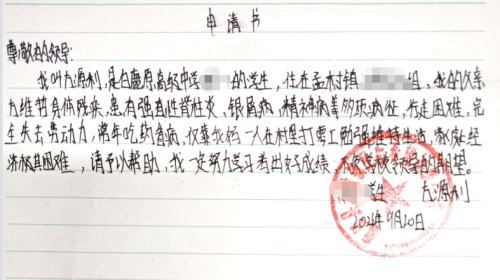 申请书
尊敬的领导:
我叫左源利,是白鹿原高级中学 的学生,住在孟村镇 组,我的父亲
左维节身体残疾,患有强直性脊柱炎、银屑病、精神病等多项病症,行走困难,完
全失去劳动力,常年吃药看病,仅靠我妈一人在村里打零工勉强维持生活,家庭经
济极其困难,请予以帮助,我一定努力学习考出好成绩,不负学校领导的期望。
学生 左源利
2024年9月20日